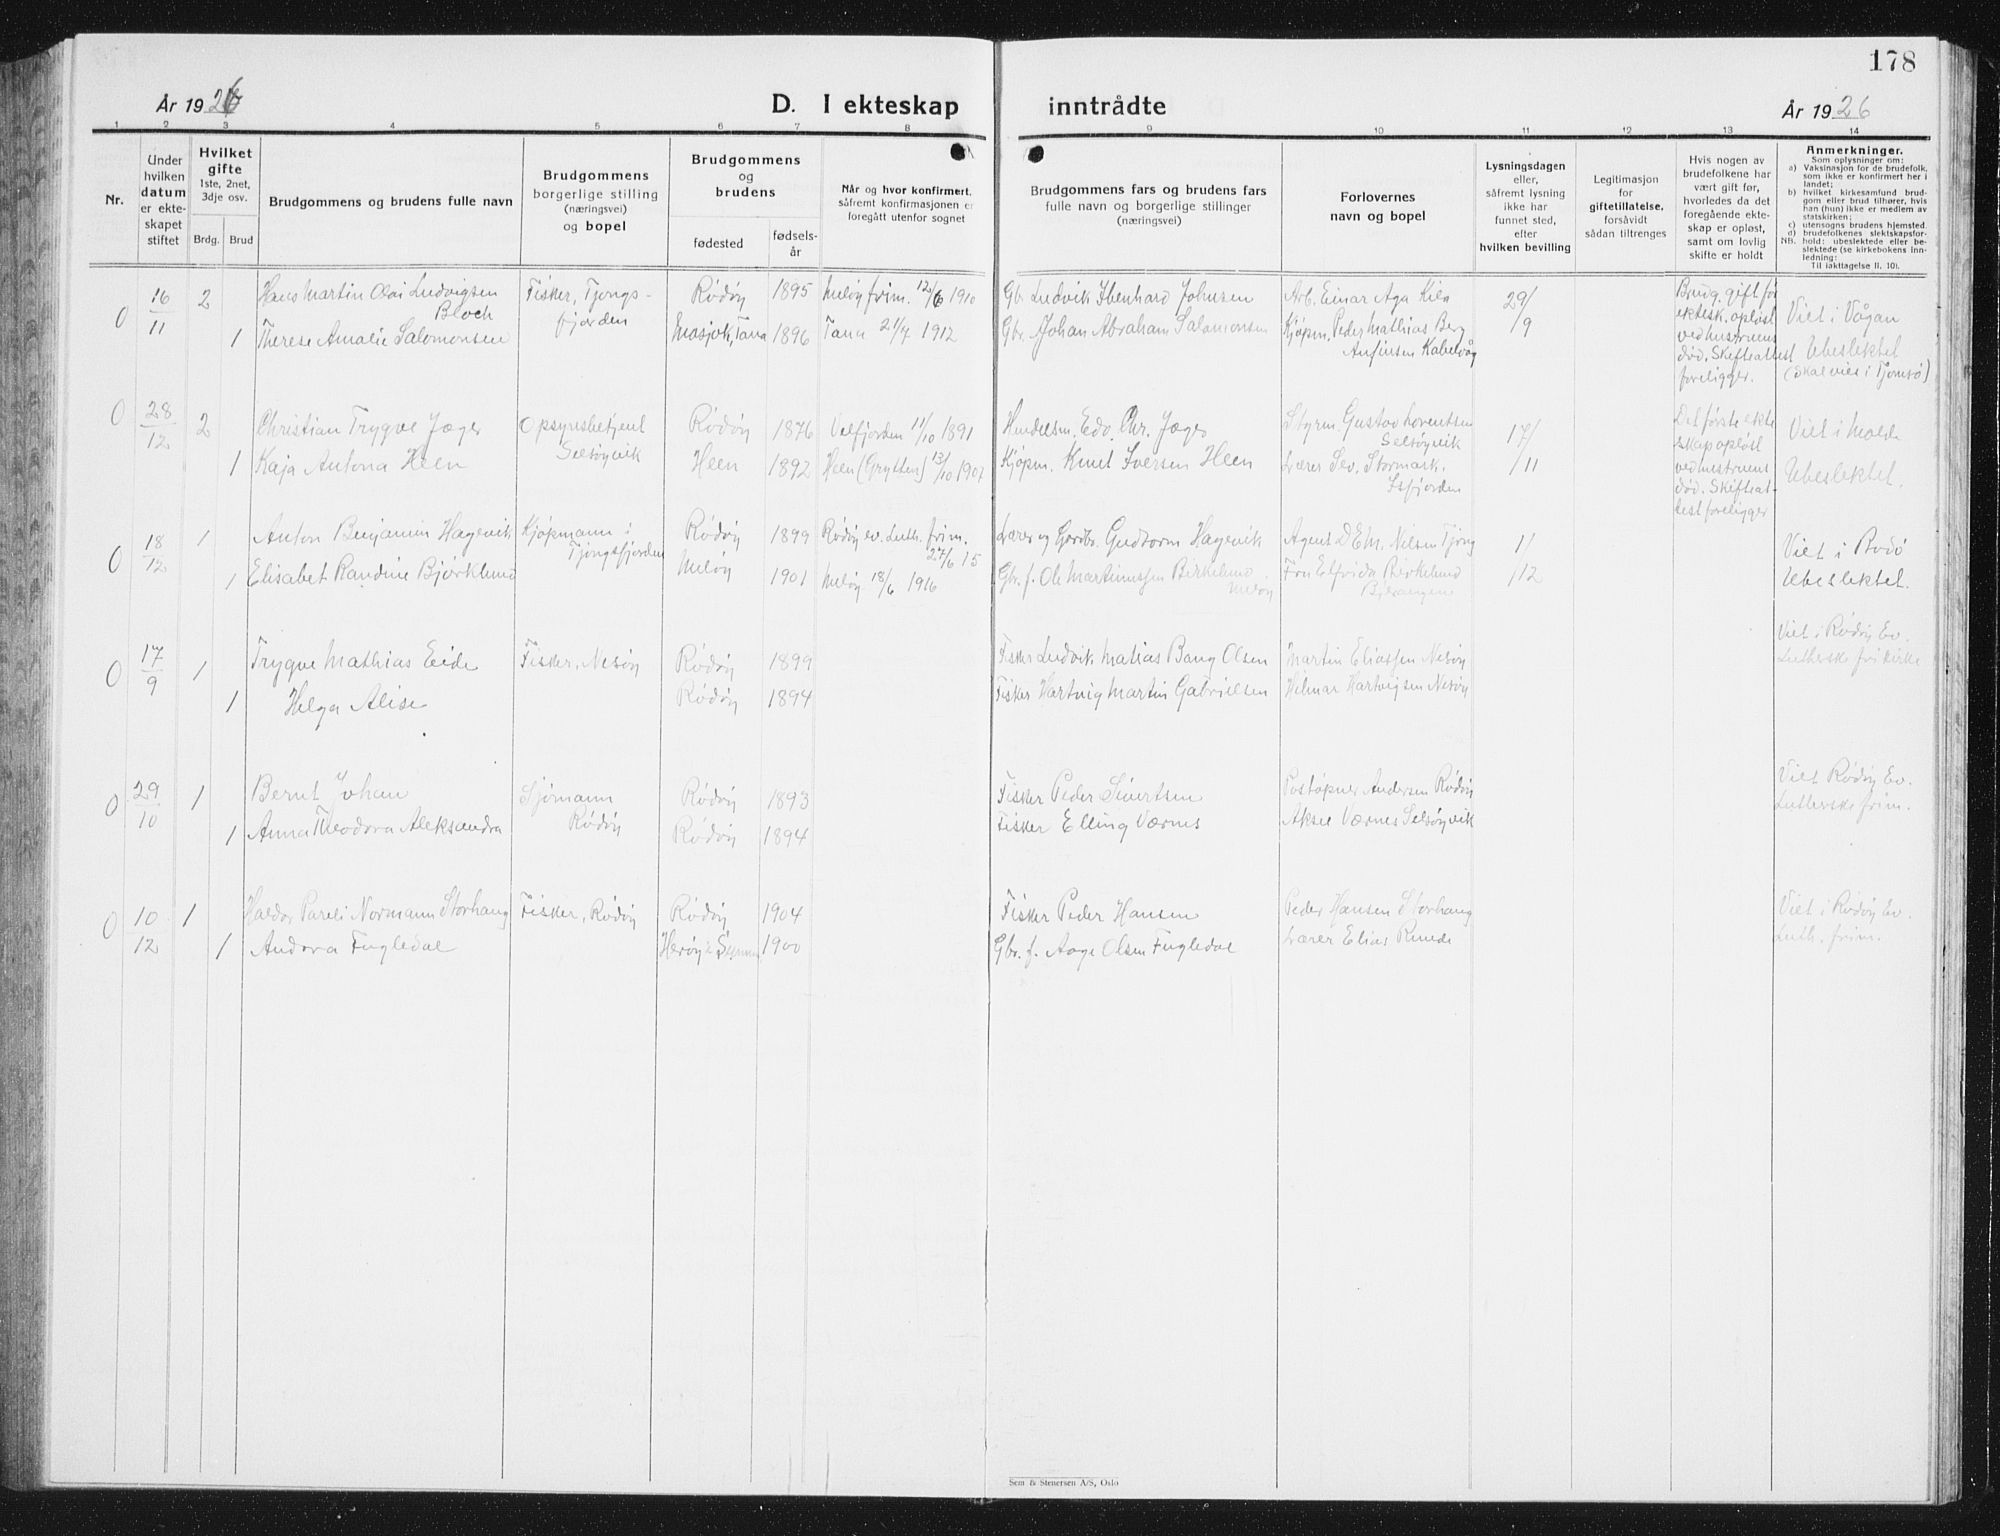 178
År 1926
D. I ekteskap inntrådte
År 1926
1 2 3 4 5 6 7 8 9 10 11 12 13 14
Nr.
Under hvilken datum er ekteskapet stiftet
Hvilket gifte
1ste, 2net, 3dje osv.
Brdg. Brud
Brudgommens og brudens fulle navn
Brudgommens borgerlige stilling (næringsvei) og bopel
Brudgommens og brudens
fødested
fødselsår
Når og hvor konfirmert, såfremt konfirmasjonen er foregått utenfor sognet
Brudgommens fars og brudens fars fulle navn og borgerlige stillinger (næringsvei)
Forlovernes navn og bopel
Lysningsdagen eller, såfremt lysning ikke har funnet sted, efter hvilken bevilling
Legitimasjon for giftetillatelse, forsåvidt sådan tiltrenges
Hvis nogen av brudefolkene har vært gift før, hvorledes da det foregående ekteskap er opløst, samt om lovlig skifte er holdt
Anmerkninger.
Som oplysninger om:
a) Vaksinasjon for de brudefolk, som ikke er konfirmert her i landet;
b) hvilket kirkesamfund brudgom eller brud tilhører, hvis han (hun) ikke er medlem av statskirken;
c) utensogns brudens hjemsted.
d) brudefolkenes slektskapsforhold: ubeslektede eller beslektede (se kirkebokens innledning:
NB. Til iakttagelse II, 10).
0 16/11 2 Hans Martin Olai Ludvigsen Bloch Fisker, Tjongsfjorden Rödöy 1895 Meløy frim. 12/6 1910 Gb. Ludvik Ibenhard Johnsen Arb. Einar Aga Kila 29/9 Brudg. gift før ektesk. opløst ved hustruens død. Skifteattest foreligger. Viet i Vågan
1 Therese Amalie Salomonsen Masjok, Tana 1896 Tana 21/7 1912 Gbr. Johan Abraham Salomonsen Kjøpm. Peder Mathias Berg Anfinsen Kabelvåg Ubeslektet
0 28/12 2 Christian Trygve Jæger Opsynsbetjent Selsøyvik Rödöy 1876 Velfjorden 11/10 1891 Handelsm. Edv. Chr. Jæger Styrm. Gustav Lorentsen Selsøyvik 17/11 Det første ekteskap opløst ved hustruens død. Skifteattest foreligger Viet i Molde
1 Kaja Antona Heen Heen 1892 Heen (Grytten) 13/10 1907 Kjøpm. Knut Iversen Heen Lærer Sev. Stormark. Isfjorden Ubeslektet.
0 18/12 1 Anton Benjamin Hagevik Kjøpmann i Tjongsfjorden Rödöy 1899 Rödöy ev. luth. frim. 27/6 15 Lærer og Gårdbr. Gudtorm Hagevik Agent D Em. Nilsen Tjong 1/12 Viet i Bodø
1 Elisabet Randine Bjørklund Meløy 1901 Meløy 18/6 1916 Gbr. f. Ole Martinussen Birkelund Meløy Fru Elfrida Birkelund Ubeslektet.
0 17/9 1 Trygve Mathias Eide Fisker, Nesøy Rödöy 1899 Fisker Ludvik Matias Bang Olsen Martin Eliassen Nesøy Viet i Rödöy Ev. Lutherske frikirke
1 Helga Alise Rödöy 1894 Fisker Hartvig Martin Gabrielsen Helmar Hartvigsen Nesøy
0 29/10 1 Bernt Johan Sjømann Rödöy Rödöy 1893 Fisker Peder Sivertsen Poståpner Andersen Rödöy Viet Rödöy Ev. Lutherske frim.
1 Anna Theodora Aleksandra Rödöy 1894 Fisker Elling Værnes Aksel Værnes Selsøyvik
0 10/12 1 Haldor Pareli Normann Storhaug Fisker, Rödöy Rödöy 1904 Fisker Peder Hansen Peder Hansen Storhaug Viet i Rödöy Ev. Luth. frim.
1 Andora Fugledal Herøy 1900 Gbr. f. Aage Olsen Fugledal Lærer Elias Runde
Sem & Stenersen A/S, Oslo